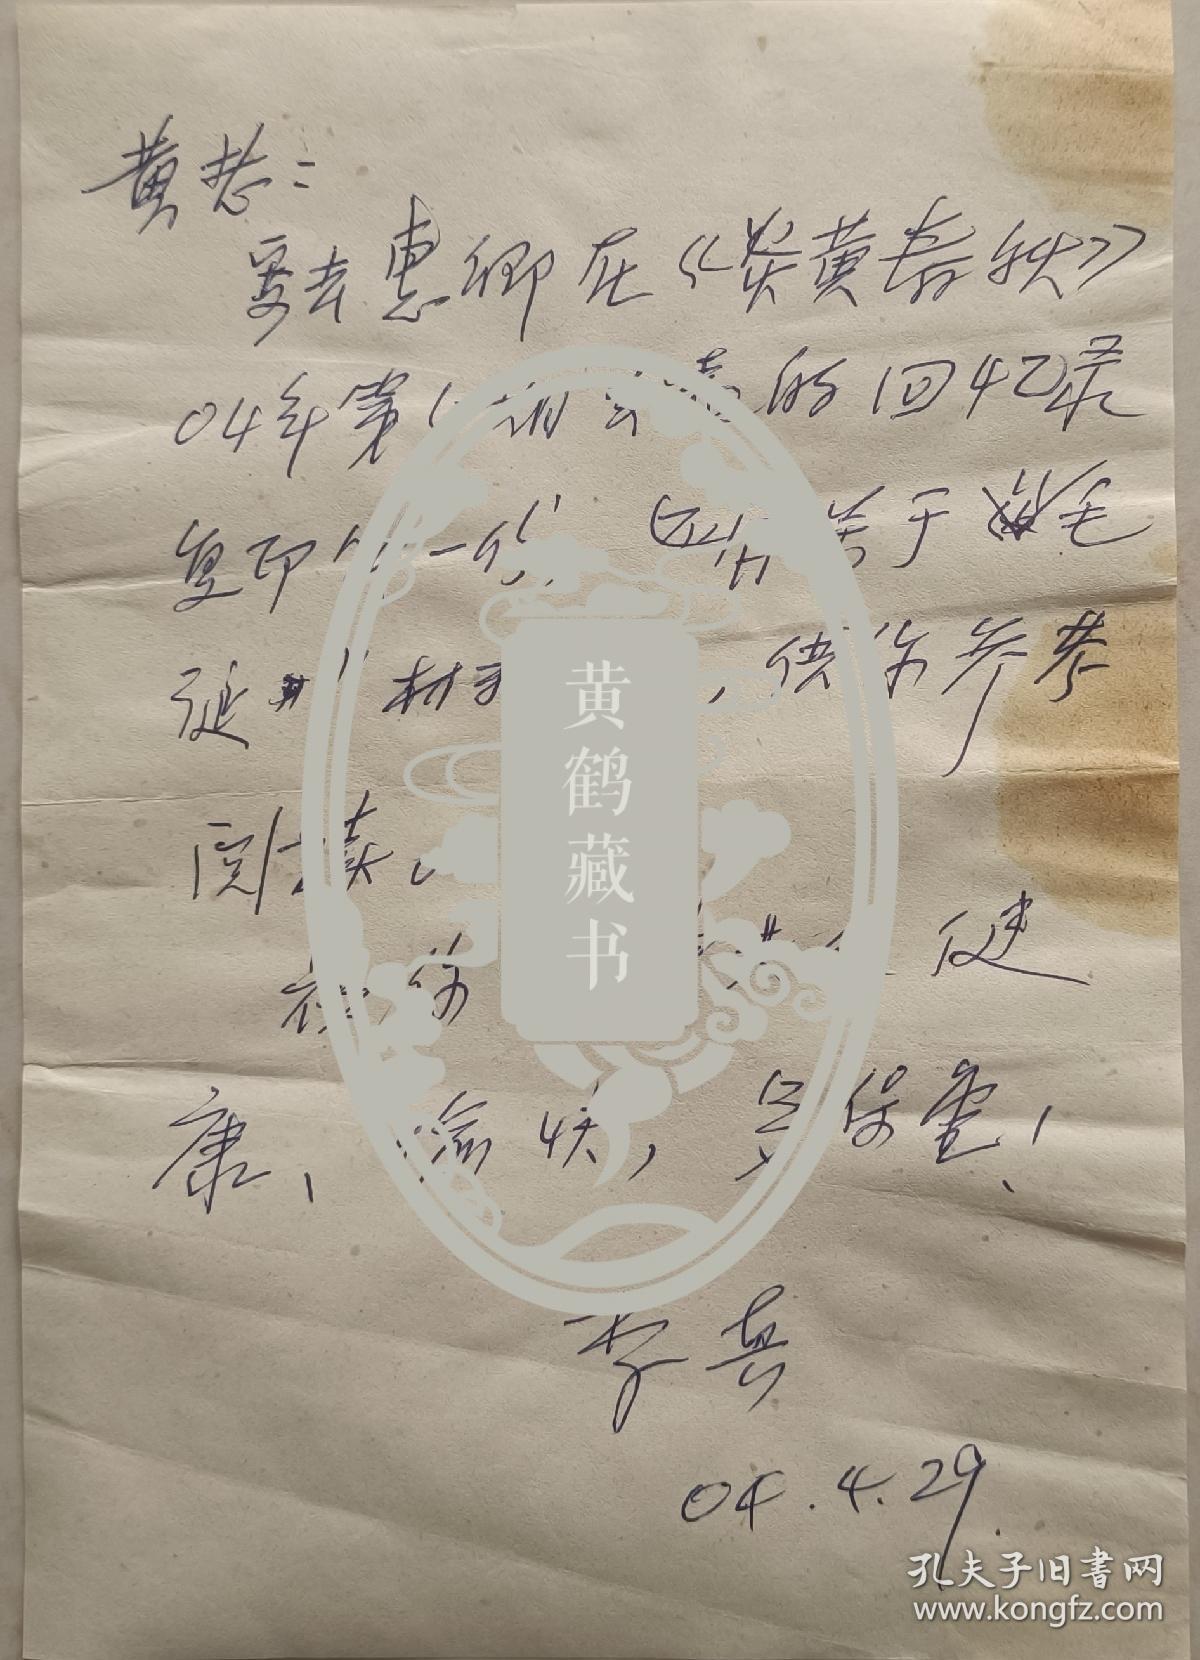 黄总:
要去惠卿在《炎黄春秋》
04年第 期 的回忆录
复印了一份, 关于毛
诞 材 ,供你参考
阅读。
祝你 健
康、愉快,多保重!
李兵
04.4.29.
黄鹤藏书
孔夫子旧书网
www.kongfz.com